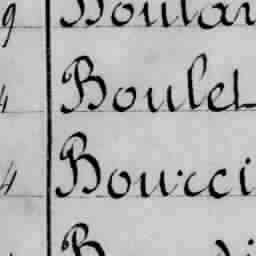 9 Boular
4 Boulet
4 Bourci